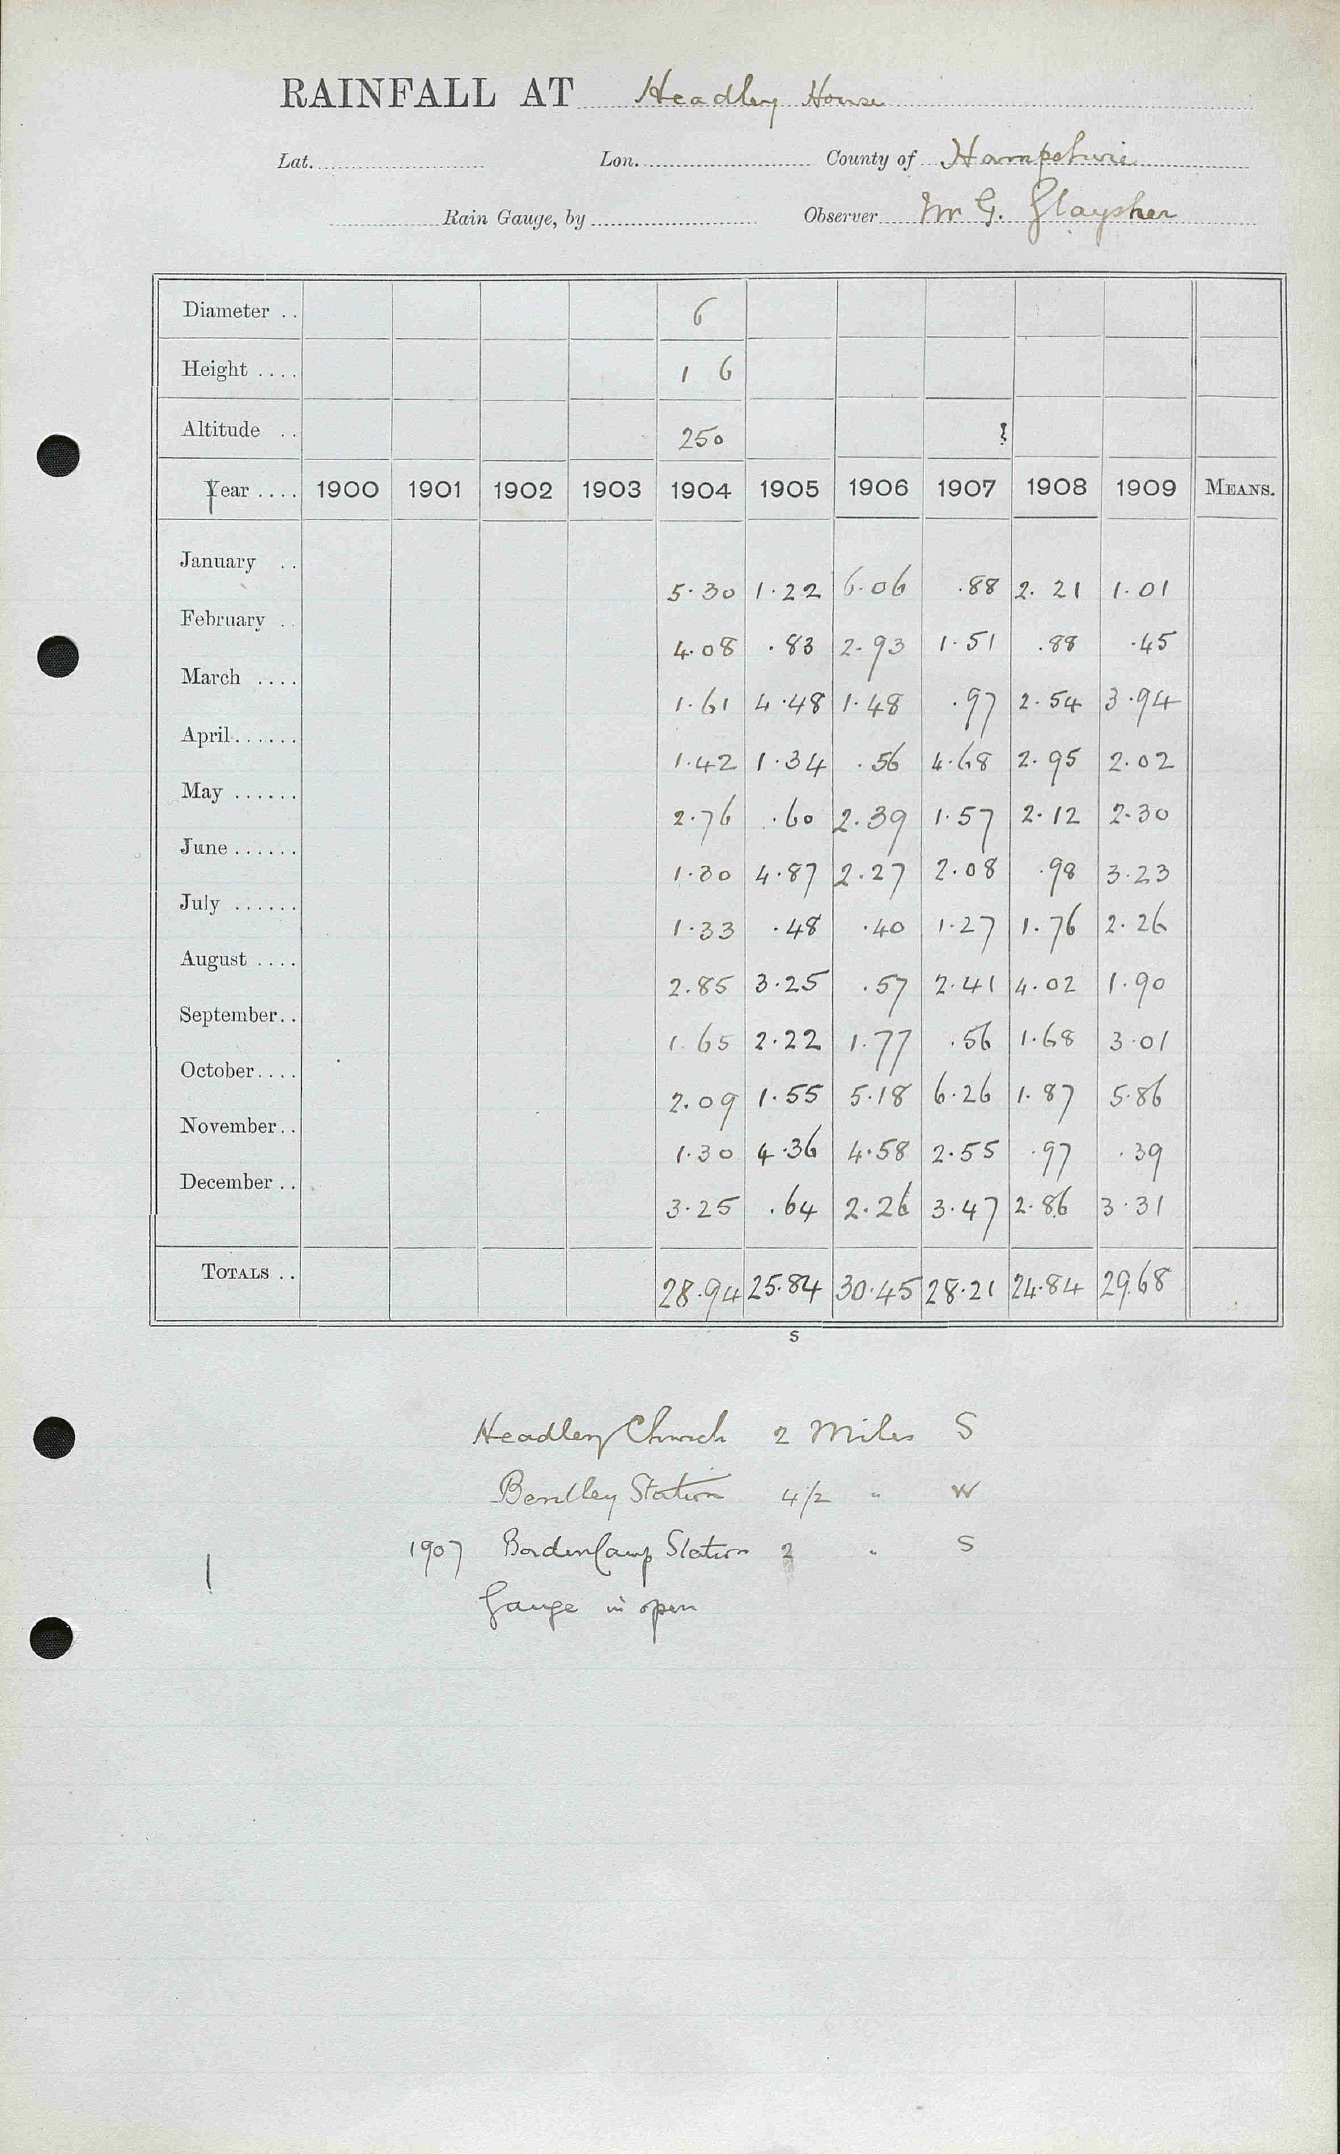 RAINFALL AT Headley House
Lat. Lon. County of Hampshire
Rain Gauge, by Observer Mr G. Glaysher
Diameter .. 6
Height .... 1 6
Altitude .. 250 ?
Year .... 1900 1901 1902 1903 1904 1905 1906 1907 1908 1909 MEANS.
January .. 5.30 1.22 6.06 .88 2.21 1.01
February .. 4.08 .83 2.93 1.51 .88 .45
March .... 1.61 4.48 1.48 .97 2.54 3.94
April...... 1.42 1.34 .56 4.68 2.95 2.02
May ...... 2.76 .60 2.39 1.57 2.12 2.30
June ...... 1.30 4.87 2.27 2.08 .98 3.23
July ...... 1.33 .48 .40 1.27 1.76 2.26
August .... 2.85 3.25 .57 2.41 4.02 1.90
September.. 1.65 2.22 1.77 .56 1.68 3.01
October.... 2.09 1.55 5.18 6.26 1.87 5.86
November.. 1.30 4.36 4.58 2.55 .97 .39
December .. 3.25 .64 2.26 3.47 2.86 3.31
TOTALS .. 28.94 25.84 30.45 28.21 24.84 29.68
S
Headley Church 2 Miles S
Bentley Station 4½ " W
1907 Bordon Camp Station 2 " S
Gauge in open